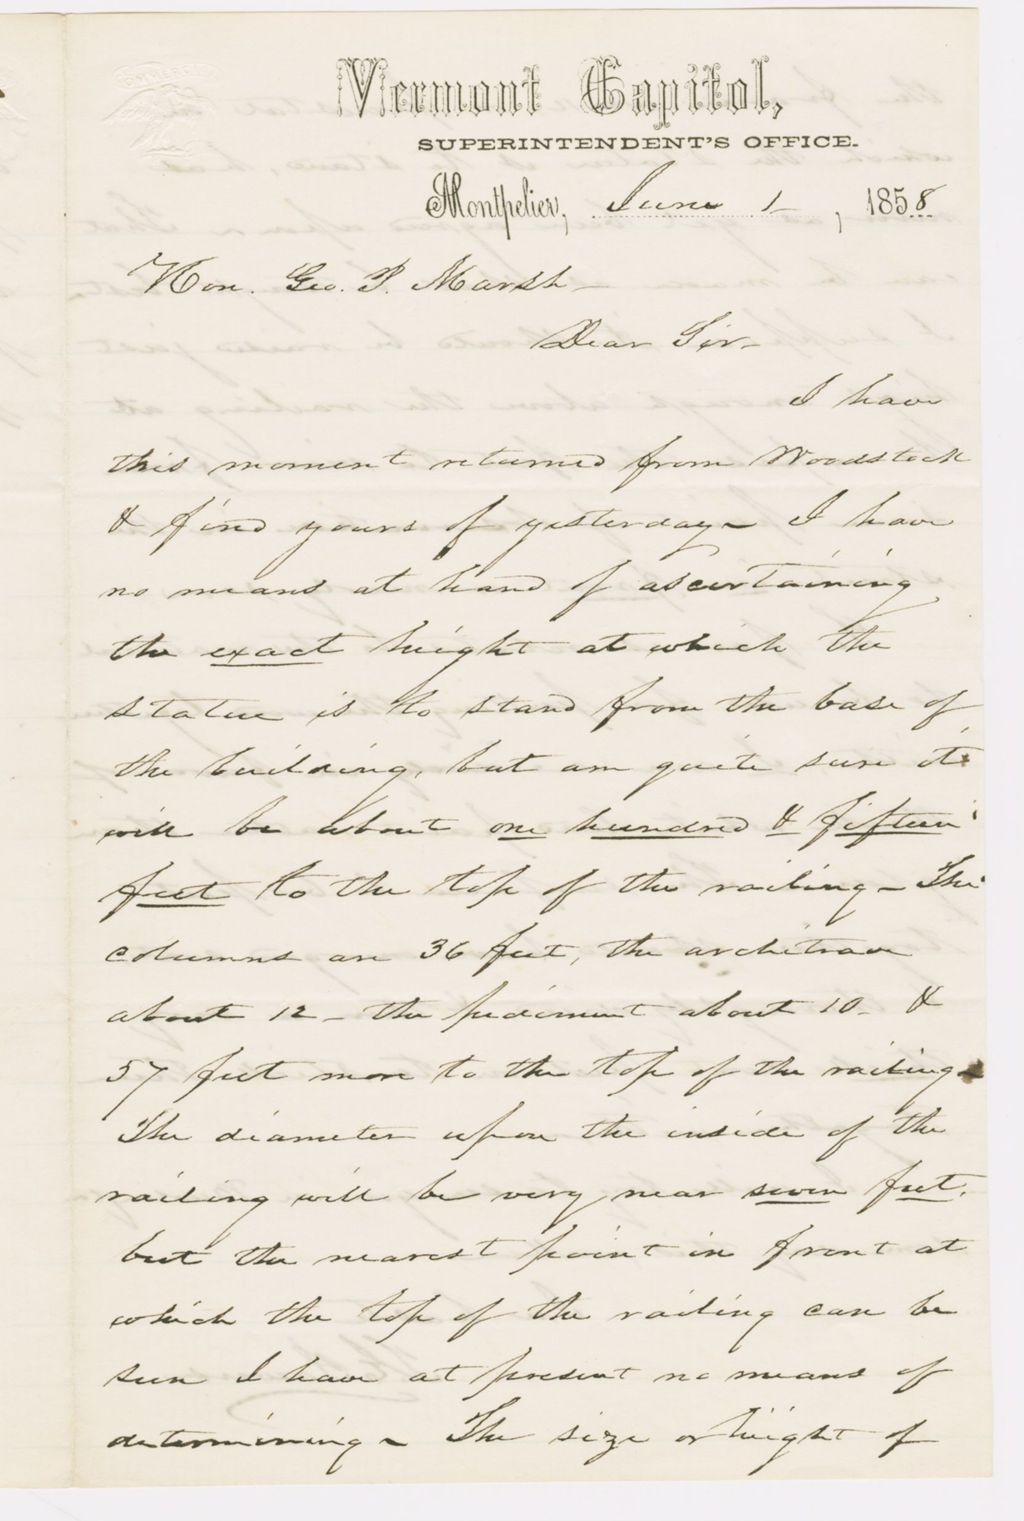 Vermont Capitol,
SUPERINTENDENT'S OFFICE.
Montpelier, June 1, 1858
Hon. Geo. P. Marsh-
Dear Sir-
I have
this moment returned from Woodstock
& find yours of yesterday- I have
no means at hand of ascertaining
the exact height at which the
statue is to stand from the base of
the building, but am quite sure it
will be about one hundred & fifteen
feet to the top of the railing- The
columns are 36 feet, the architrave
about 12- the pediment about 10- &
57 feet more to the top of the railing-
The diameter upon the inside of the
railing will be very near seven feet.
but the nearest point in front at
which the top of the railing can be
seen I have at present no means of
determining- The size or height of